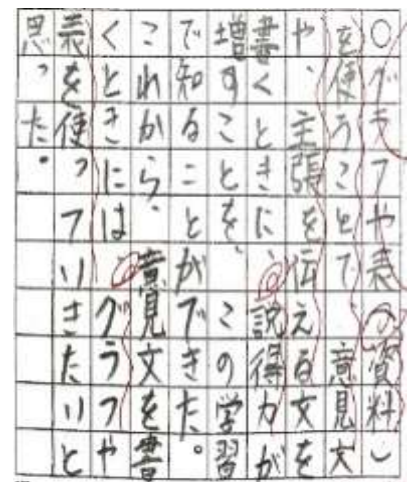 ○グラフや表(資料)
を使うことで、意見文
や、主張を伝える文を
書くときに、説得力が
増すことを、この学習
で知ることができた。
これから、意見文を書
くときには、グラフや
表を使っていきたいと
思った。